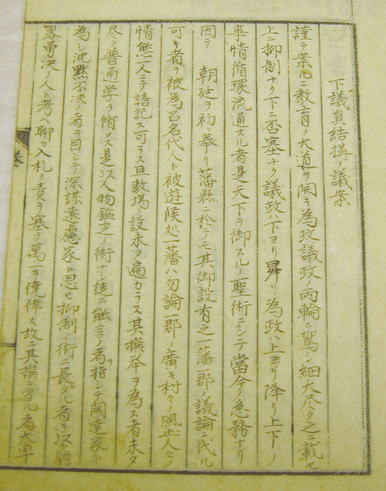 下議員結構ノ議案
謹テ案ルニ教育ノ大道ヲ開キ為政議政ノ両輪ニ駕シ細大尽ク之ニ載セ
上ニ抑制ナク下ニ否塞ナク議政ハ下ヨリ昇リ為政ハ上ヨリ降リ上下ノ
事情循環流通スル者是天下ヲ御スルノ聖術ニシテ當今ノ急務ナリ
因テ 朝廷ヲ初メ奉リ藩縣ニ於テモ其御設有之一藩一郡ノ議論ニ代ル
可キ者ヲ被為召名代人ト被遊候処一藩ハ勿論一郡ノ廣キ村々ノ風土人々ノ
情態一人ニテ諳記ス可ラス且数場ノ設未タ遍カラス其撰挙ヲ為ス者未タ
尽ク普通学ヲ脩メス是以人物鑑定ノ術ナシ徒ニ能言ノ者ヲ指シテ濶達家ト
為シ沈黙不決ノ者ヲ目シテ深謀遠慮家ト思ヒ抑制ノ術ニ長スル者ヲ
畧勇決ノ人ト考ヘ聊カ入札ノ責ヲ塞テ萬一ヲ僥倖ス故ニ其撰ニ当ル者大率